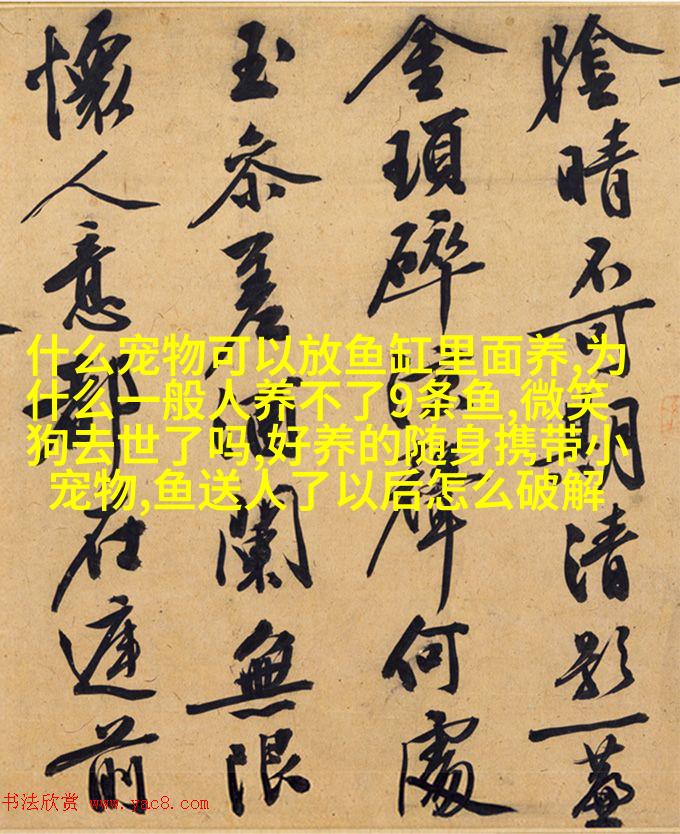 陰晴不可清影一簷
金瑣碎聲何處
玉參差闌無限
懷人意都在庭前
什么宠物可以放鱼缸里面养,为
什么一般人养不了9条鱼,微笑
狗去世了吗,好养的随身携带小
宠物,鱼送人了以后怎么破解
书法欣赏 www.yac8.com